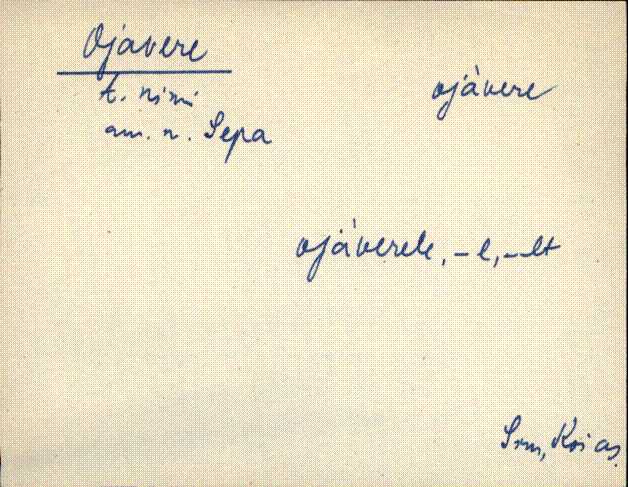 Ojavere
t. nimi
am. n. Sepa
ojàvere
ojàverele, -l, -lt
Srm, Koi as.